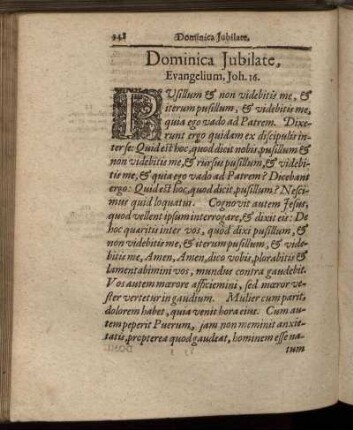 348 Dominica Jubilate.
Dominica Jubilate,
Evangelium, Joh. 16.
PUsillum & non videbitis me, &
iterum pusillum, & videbitis me,
quia ego vado ad Patrem. Dixe-
runt ergo quidam ex discipulis in-
ter se: Quid est hoc, quod dicit nobis, pusillum &
non videbitis me, & rursus pusillum, & videbi-
tis me, & quia ego vado ad Patrem? Dicebant
ergo: Quid est hoc, quod dicit, pusillum? Nesci-
mus quid loquatur. Cognovit autem Jesus,
quod vellent ipsum interrogare, & dixit eis: De
hoc quaritis inter vos, quod dixi pusillum, &
non videbitis me, & iterum pusillum, & vide-
bitis me, Amen, Amen, dico vobis, plorabitis &
lamentabimini vos, mundus contra gaudebit.
Vos autem mœrore afficiemini, sed mœror ve-
ster vertetur in gaudium. Mulier cum parit,
dolorem habet, quia venit hora eius. Cum au-
tem peperit Puerum, jam non meminit anxie-
tatis, propterea quod gaudeat, hominem esse na-
tum